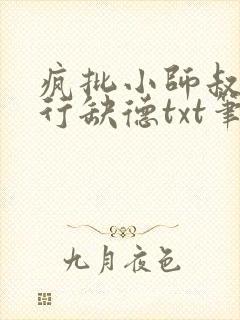 疯批小师叔
行缺德txt笔
九月夜色